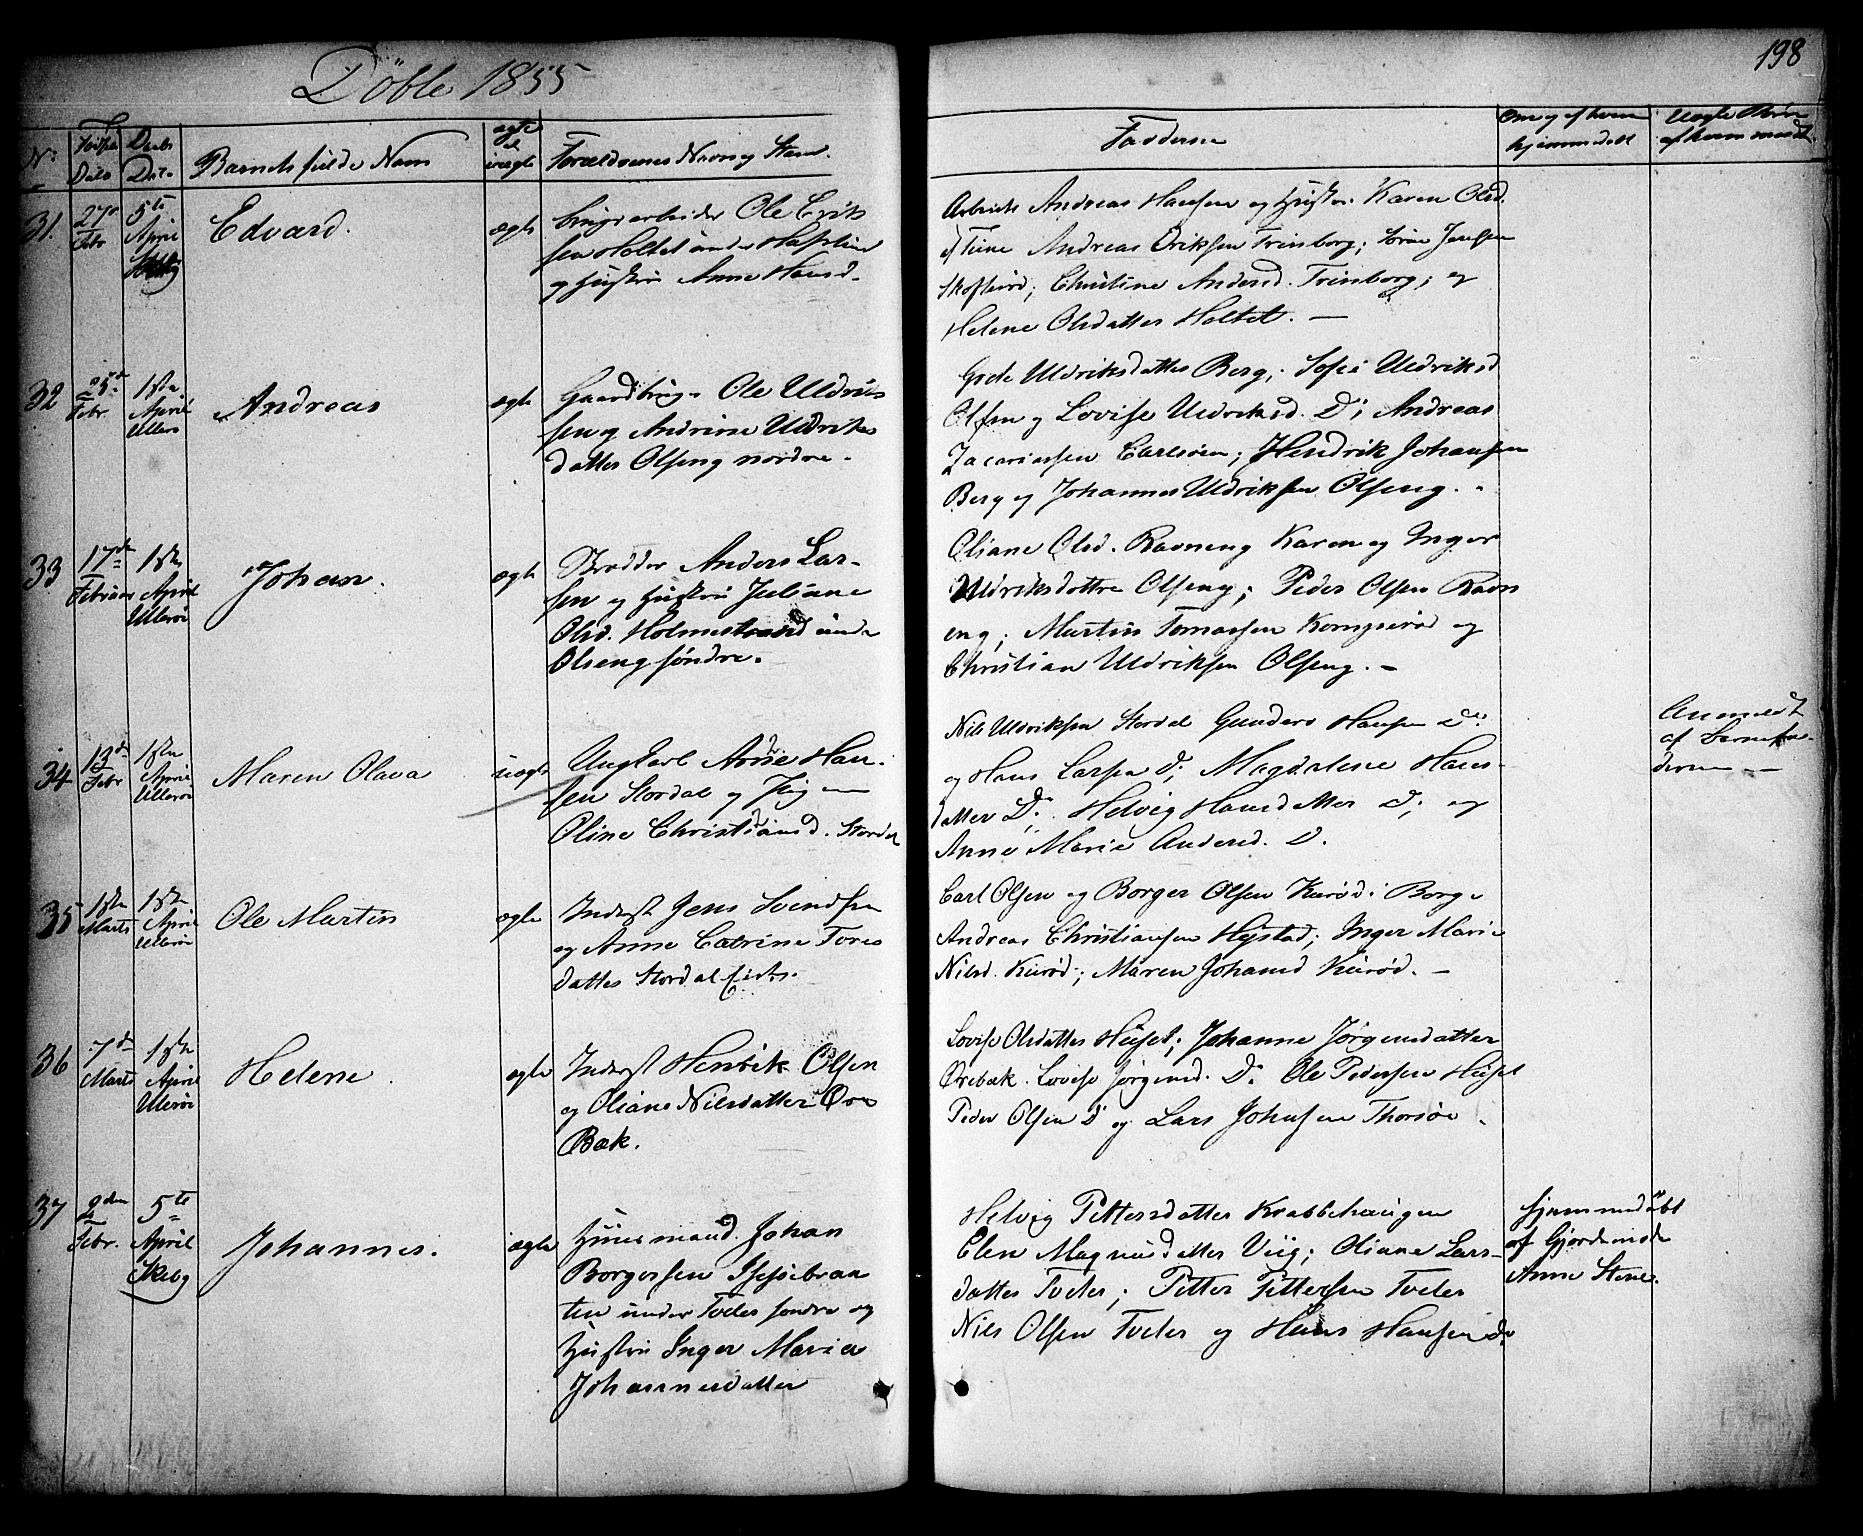 198
Döbte 1855
No. Fødsels Dato Daabs Dat. Barnets fulde Navn ægte el uægte Forældrenes Navn og Stand.
Fadderne
Om og af hvem hjemmedøbt
Uægte Børn af hvem anmeldt.
31. 27de Febr 5te April Edvard. ægte
Brugsarbeider Ole Erik
sen Holtet under Hafslund
og Hustru Anne Hansd.
Arbeids Andreas Hansen og Hustru Karen Olsd.
Andreas Eriksen Trinborg; Sørine Jensen
Christine Andersd. Trinborg; og
Helene Olsdatter Holtet. —
32 25de Febr. 1ste April Ullerø Andreas ægte
Gaardbrug. Ole Uldrik
sen og Andrine Uldriks
datter Olseng nordre.
Grete Uldriksdatter Berg; Sofie Uldriksd
Olsen og Lovise Uldriksd. Do; Andreas
Zacariassen Carlsøen; Hendrik Johansen
Berg og Johannes Uldriksen Olseng.
33 17de Februar 1ste April Ullerø Johan. ægte
Skrædder Anders Lar-
sen og Hustru Juliane
Olsd. Holmestrand under
Olseng søndre.
Oliane Olsd. Ravneng Karen og Inger
Uldriksdøttre Olseng; Peder Olsen Ravn
eng; Martin Tomassen Komperød og
Christian Uldriksen Olseng. —
34 13de Febr 1ste April Ullerø Maren Olava uægte
Ungkarl Arne Han-
sen Stordal og Pigen
Oline Christiansd. Stordal
Nils Uldriksen Stordal Gunders Hansen Do
og Hans Larsen Do; Magdalene Hans-
datter Do; Helvig Hansdatter Do; og
Anne Marie Andersd. Do.
Anmeldt
af Barnefa-
deren —
35 1ste Marts 1ste April Ullerø Ole Martin ægte
Inderst Jens Svendsen
og Anne Catrine Tores
datter Stordal
Carl Olsen og Borger Olsen Kurød; Borge
Andreas Christiansen Hystad; Inger Marie
Nilsd. Kurød; Maren Johansd Kurød. —
36 7de Marts 1ste April Ullerø Helene. ægte
Inderst Henrik Olsen
og Oliane Nilsdatter Øre
Bæk.
Lovise Olsdatter Huset; Johanne Jørgensdatter
Ørebæk. Lovise Jørgensd. Do. Ole Pedersen Huset
Peder Olsen Do og Lars Johnsen Thorsøe.
37 2den Febr. 5te April Skieby Johannes. ægte
Huusmand Johan
Borgersen
ten under Tveter søndre og
Hustru Inger Maria
Johannesdatter
Helvig Pettersdatter Krabbehaugen
Elen Magnusdatter Viig; Oliane Lars-
datter Tveter; Petter Pettersen Tveter
Nils Olsen Tveter og Hans Hansen Do
Hjemmedøbt
af Gjordemoder
Anne Stene.